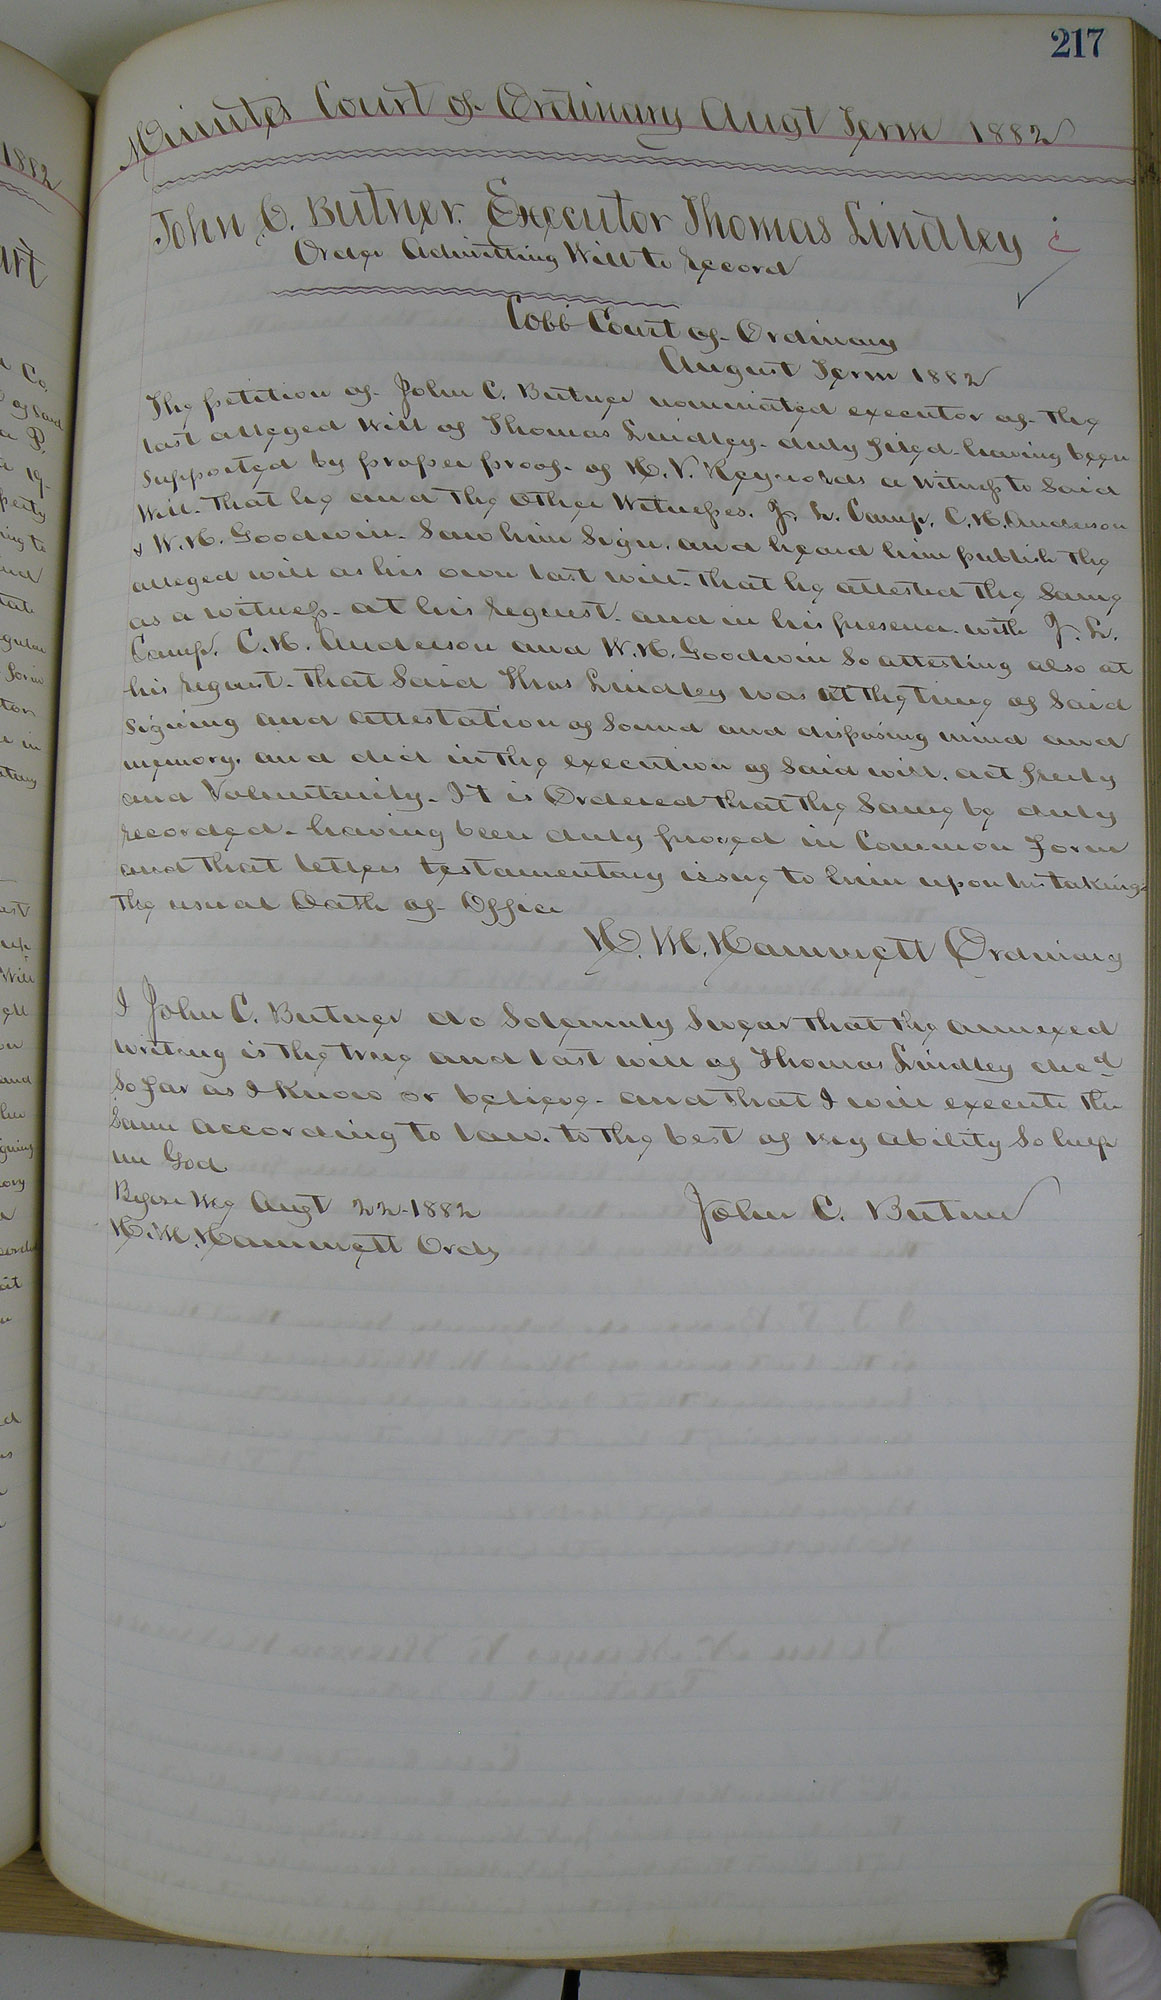 217
Minutes Court of Ordinary Augt Term 1882
John C. Butner. Executor Thomas Lindley
Order Admitting Will to record
Cobb Court of Ordinary
August Term 1882
The petition of John C. Butner nominated executor of the
last alleged Will of Thomas Lindley duly filed having been
supported by proper proof of H. V. Reynolds a Witness to Said
Will. That he and the other Witnesses. J. L. Camp, C. N. Anderson
& W. H. Goodwin. Saw him Sign, and heard him publish the
alleged will as his own last will. That he attested the Same
as a witness at his request and in his presence with J. L.
Camp, C. N. Anderson and W. H. Goodwin So attesting also at
his request. That Said Thos Lindley was at the time of Said
signing and attestation of Sound and disposing mind and
memory. and did in the execution of Said will. act freely
and Voluntarily. It is Ordered that the Same be duly
recorded having been duly proved in Common form
and that letters testamentary issue to him upon his taking
the usual Oath of Office
H. M. Hammett Ordinary
I John C. Butner do Solemnly Swear that the annexed
writing is the true and last will of Thomas Lindley decd
So far as I know or believe. and that I will execute the
Same according to law. to the best of my ability So help
me God
Before Me Augt 22-1882
John C. Butner
H. M. Hammett Ordy
1882